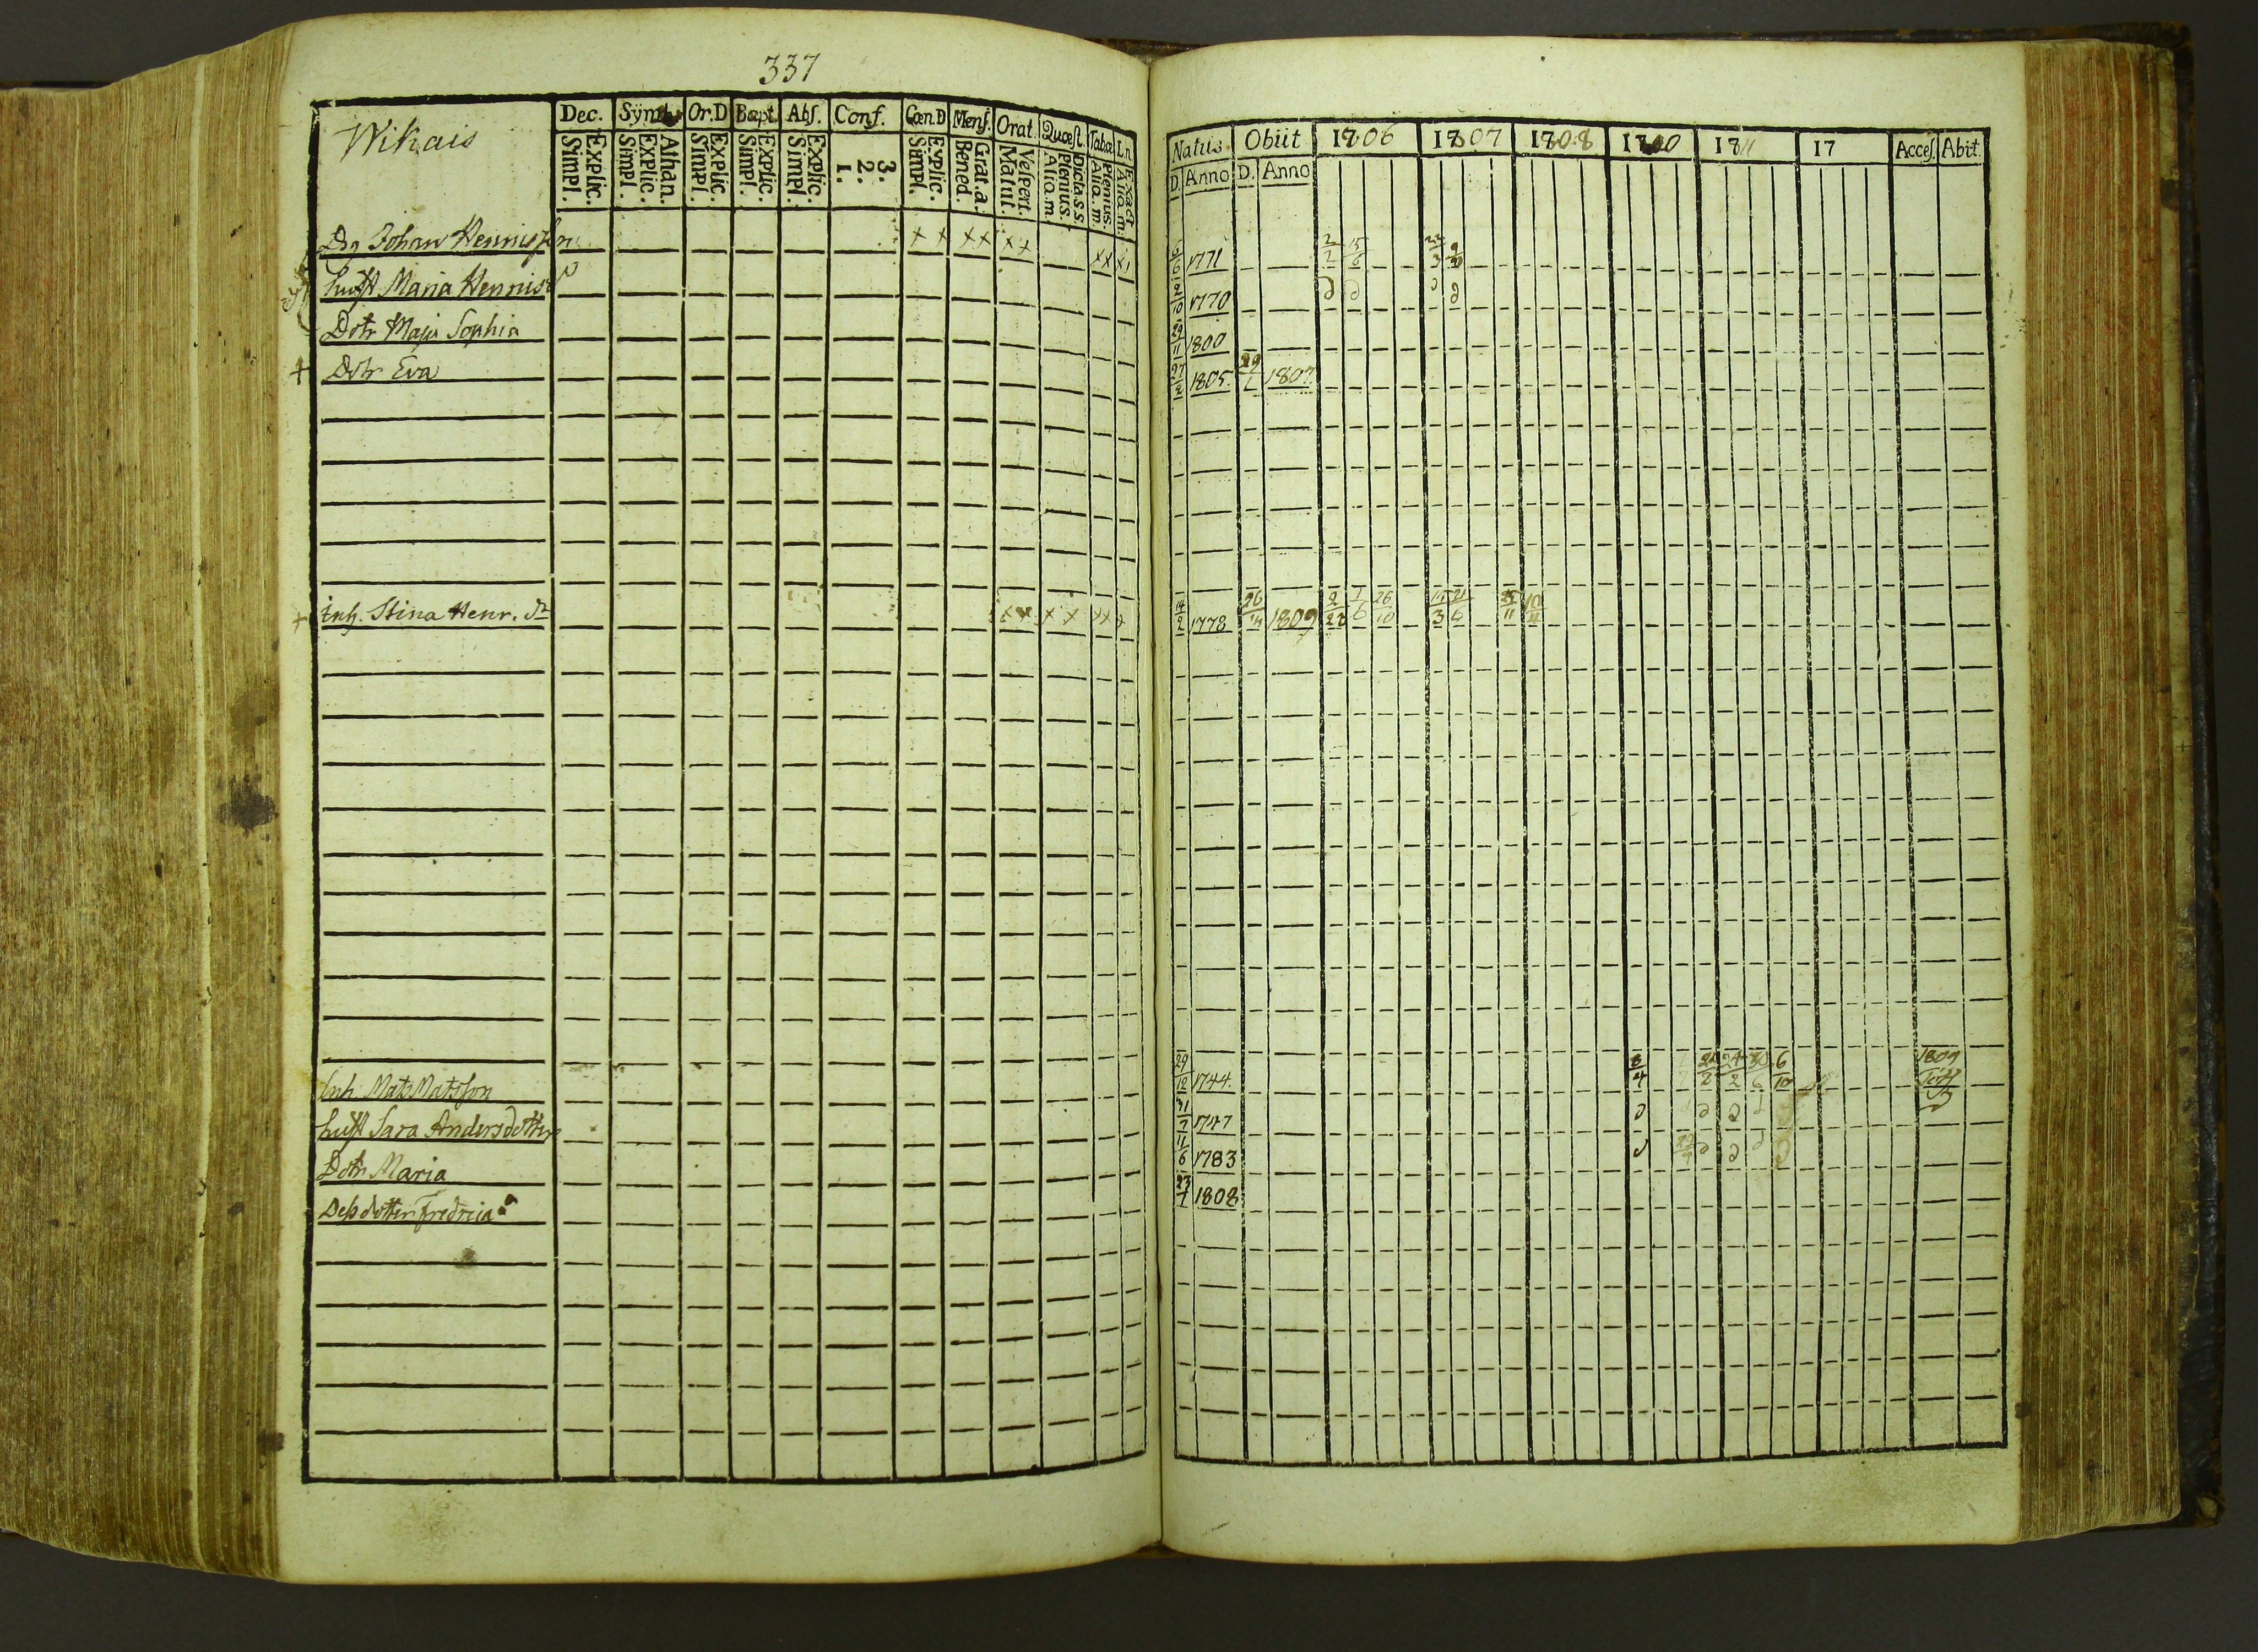 337
Wikais
Dec. Symb. Or.D Bapt. Abſ. Conf. Cœn.D Menſ. Orat. Quæſt. Tabœ Ln.
Explic. Simpl. Athan. Explic. Simpl. Explic. Simpl. Explic. Simpl. Explic. Simpl. 3. 2. 1. Explic. Simpl. Grat. a. Bened. Veſpert. Matut. Dicta. s.s. Plenius. Alio. m. Plenius. Alia. m. Exact Alio. m.
Natus Obiit 1806 1807 1808 1800 1811 17 Acceſ. Abit.
D. Anno D. Anno
Drg Johan Hennisson × × ×× ×× ×× ×× 6/6 1771 2/2 15/6 22/3
hust Maria Hennisd 2/10 1770 d d d d
Dotr Maja Sophia 29/11 1800
+ Dotr Eva 27/2 1805. 29/1 1807.
+ inh. Stina Henr. dr ×× × × ×× × 14/2 1778 26/ 1809 2/22 7/6 26/10 15/3 21/6 /11
Inh. Mats Matsson 29/12 1744. 8/4 2/2 24/2 30/6 6/10 1809
hust Sara Andersdotter 31/7 1747 d d d d d
Dotr Maria 11/6 1783 d d d d
Dess dotter Fredrica 23/1 1808